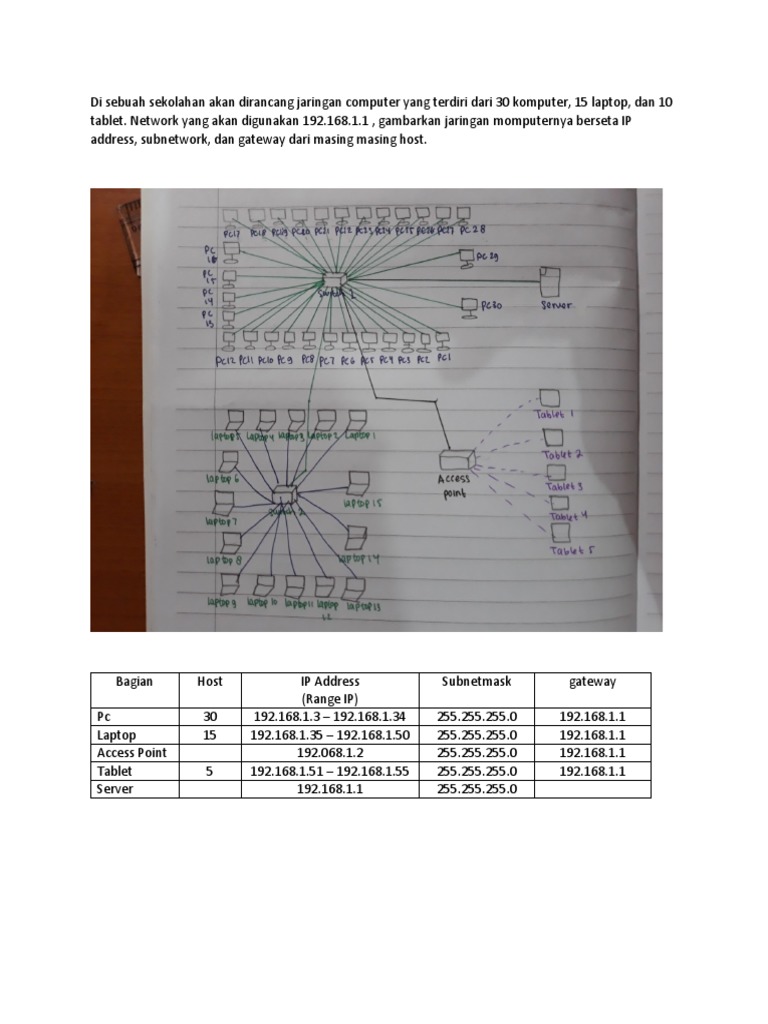 Di sebuah sekolahan akan dirancang jaringan computer yang terdiri dari 30 komputer, 15 laptop, dan 10
tablet. Network yang akan digunakan 192.168.1.1 , gambarkan jaringan momputernya berseta IP
address, subnetwork, dan gateway dari masing masing host.
PC17 PC18 PC19 PC20 PC21 PC22 PC23 PC24 PC25 PC26 PC27 PC 28
PC 16
PC 29
PC 15
PC 14
Switch 1
Server
PC30
PC 13
PC12 PC11 PC10 PC9 PC8 PC7 PC6 PC5 PC4 PC3 PC2 PC1
Tablet 1
laptop5 laptop4 laptop3 laptop2 laptop1
Tablet 2
laptop 6
Access point
Tablet 3
laptop 15
laptop 7
Switch 2
Tablet 4
Tablet 5
laptop 8
laptop 14
laptop 9 laptop 10 laptop 11 laptop 12 laptop 13
Bagian Host IP Address Subnetmask gateway
(Range IP)
Pc 30 192.168.1.3 – 192.168.1.34 255.255.255.0 192.168.1.1
Laptop 15 192.168.1.35 – 192.168.1.50 255.255.255.0 192.168.1.1
Access Point 192.068.1.2 255.255.255.0 192.168.1.1
Tablet 5 192.168.1.51 – 192.168.1.55 255.255.255.0 192.168.1.1
Server 192.168.1.1 255.255.255.0